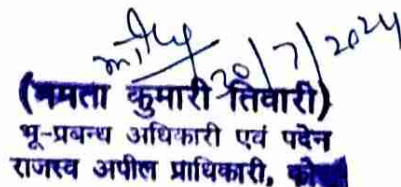 30/7/2024
(ममता कुमारी तिवारी)
भू-प्रबन्ध अधिकारी एवं पदेन
राजस्व अपील प्राधिकारी,